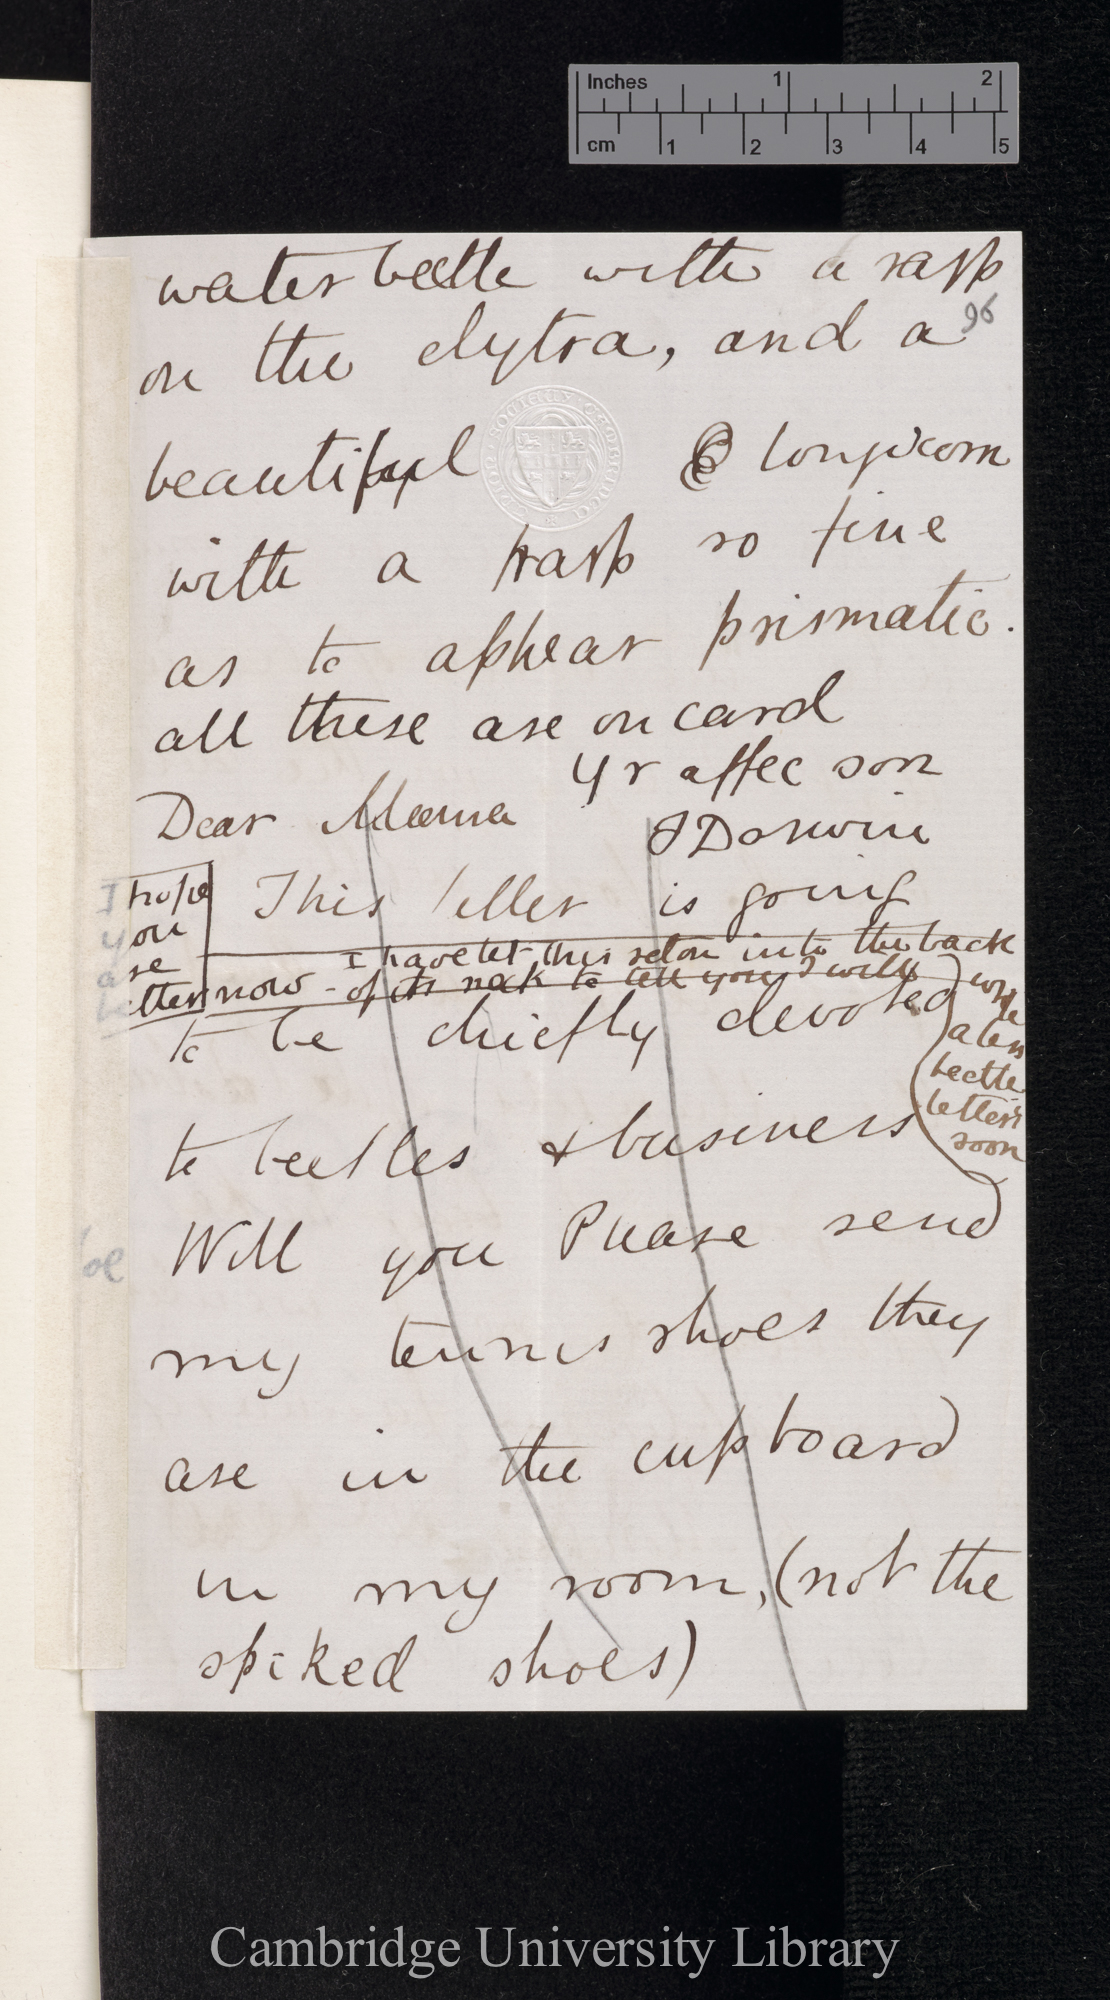 Inches 1 2
cm 1 2 3 4 5
water beetle with a rasp
on the elytra, and a
96
beautiful longicorn
with a rasp so fine
as to appear prismatic.
all these are on card
Yr affec son
FDarwin
Dear Mama
This letter is going
I hope
you
are
be
tter now -
I have let this seton into the back
of its neck to tell you I will
write
a less
beetle
letter
soon
to be chiefly devoted
to beetles & business
Will you Please send
my tennis shoes they
are in the cupboard
be
in my room, (not the
spiked shoes)
Cambridge University Library